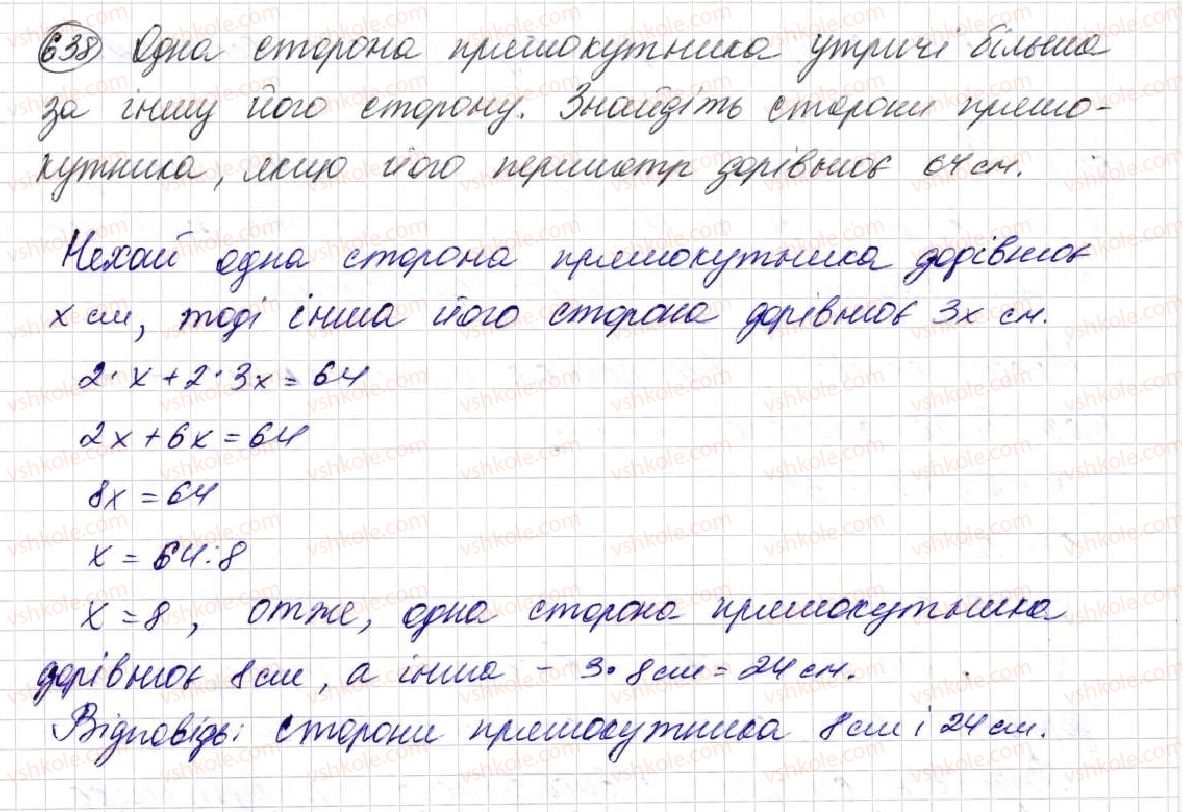 638 Одна сторона прямокутника утричі більша
за іншу його сторону. Знайдіть сторони прямо-
кутника, якщо його периметр дорівнює 64 см.
Нехай одна сторона прямокутника дорівнює
x см, тоді інша його сторона дорівнює 3x см.
2·x+2·3x=64
2x+6x=64
8x=64
x=64:8
x=8, отже, одна сторона прямокутника
дорівнює 8см, а інша - 3·8см=24см.
Відповідь: сторони прямокутника 8см і 24см.